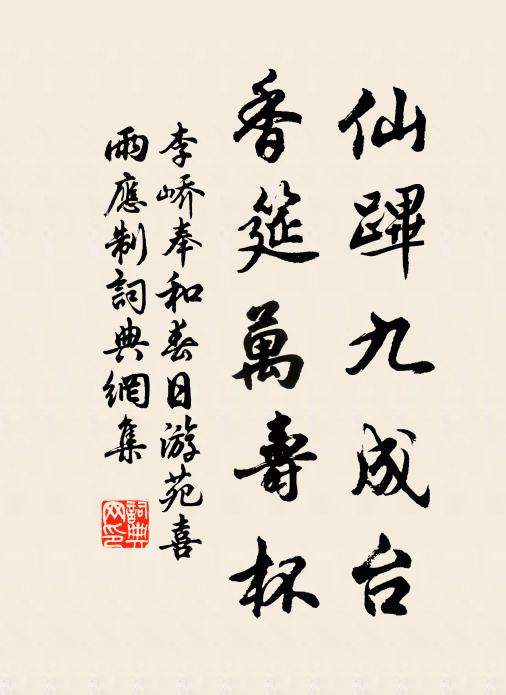 仙蹕九成台
香筵萬壽杯
李嶠奉和春日游苑喜
雨應制詞典網集
詞典网印